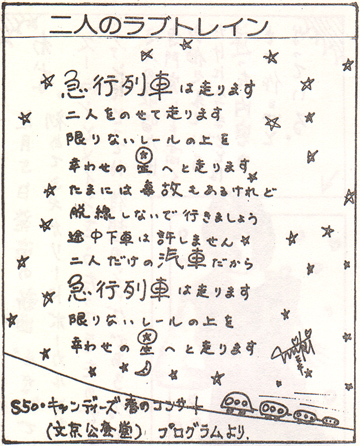 二人のラブトレイン
急行列車は走ります
二人をのせて走ります
限りないレールの上を
幸わせの星へと走ります
たまには事故もあるけれど
脱線しないで行きましょう
途中下車は許しません
二人だけの汽車だから
急行列車は走ります
限りないレールの上を
幸わせの星へと走ります
miki
S50・キャンディーズ春のコンサート
(文京公会堂) プログラムより.